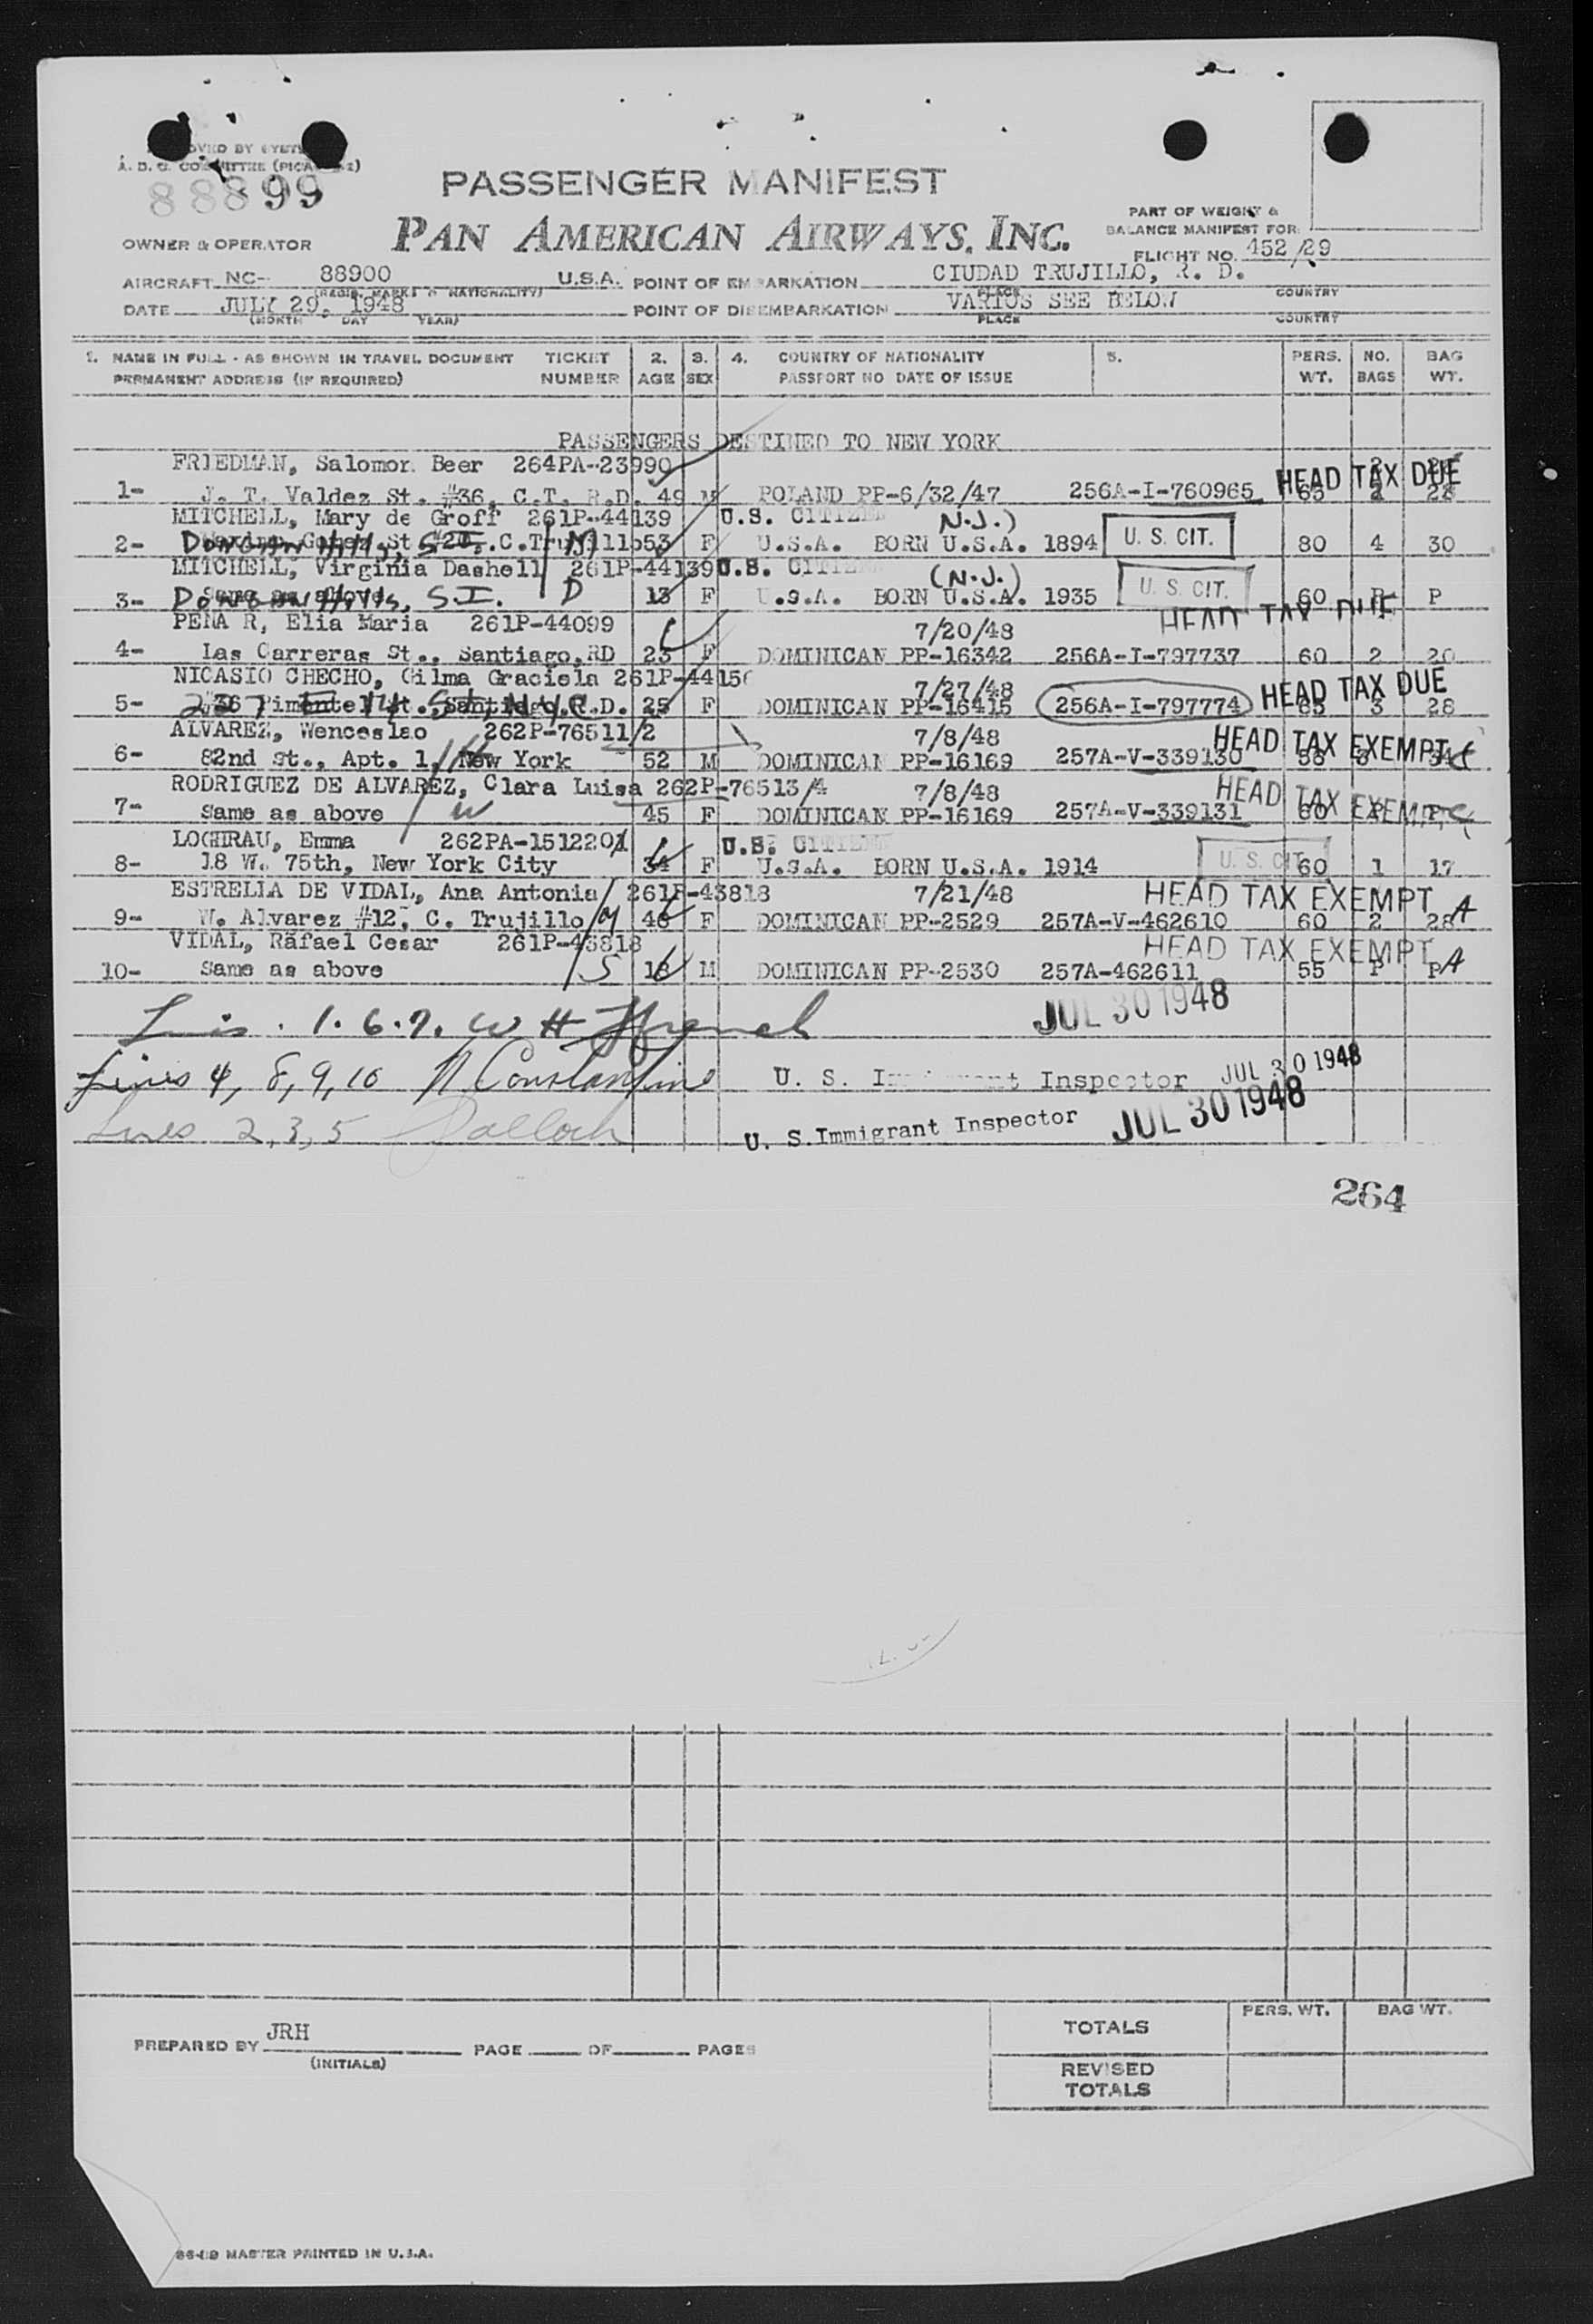 88899
PASSENGER MANIFEST
PAN AMERICAN AIRWAYS, INC.
PART OF WEIGHT &
BALANCE MANIFEST FOR:
FLIGHT NO. 452/29
OWNER & OPERATOR
AIRCRAFT NC- 88900 U.S.A. POINT OF EMBARKATION CIUDAD TRUJILLO, R. D.
(REGIS. MARKS & NATIONALITY) PLACE COUNTRY
DATE JULY 29, 1948 POINT OF DISEMBARKATION VARIOS SEE BELOW
(MONTH DAY YEAR) PLACE COUNTRY
1. NAME IN FULL - AS SHOWN IN TRAVEL DOCUMENT TICKET 2. 3. 4. COUNTRY OF NATIONALITY 5. PERS. NO. BAG
PERMANENT ADDRESS (IF REQUIRED) NUMBER AGE SEX PASSPORT NO DATE OF ISSUE WT. BAGS WT.
PASSENGERS DESTINED TO NEW YORK
FRIEDMAN, Salomon Beer 264PA-23990 HEAD TAX DUE
1- J. T. Valdez St. #36, C.T. R.D. 49 M POLAND PP-6/32/47 256A-I-760965
MITCHELL, Mary de Groff 261P-44139 U.S. CITIZEN N.J.)
2- DONGAN Hills, S.I. M 53 F U.S.A. BORN U.S.A. 1894 U. S. CIT. 80 4 30
MITCHELL, Virginia Dashell 261P-44139 U.S. CITIZEN (N.J.)
3- DONGAN Hills, S.I. D 13 F U.S.A. BORN U.S.A. 1935 U. S. CIT. 60 P P
PENA R, Elia Maria 261P-44099 7/20/48 HEAD TAX DUE
4- Las Carreras St., Santiago,RD 23 F DOMINICAN PP-16342 256A-I-797737 60 2 20
NICASIO CHECHO, Gilma Graciela 261P-44156 7/27/48 HEAD TAX DUE
5- Pimentel St. Santiago,R.D. 25 F DOMINICAN PP-16415 256A-I-797774 3 28
ALVAREZ, Wenceslao 262P-76511/2 7/8/48 HEAD TAX EXEMPT
6- 82nd st., Apt. 1, New York 52 M DOMINICAN PP-16169 257A-V-339130
RODRIGUEZ DE ALVAREZ, Clara Luisa 262P-76513/4 7/8/48 HEAD TAX EXEMPT
7- Same as above W 45 F DOMINICAN PP-16169 257A-V-339131 60 P P
Emma 262PA-151220 U.S. CITIZEN
8- 18 W. 75th, New York City 34 F U.S.A. BORN U.S.A. 1914 U. S. CIT. 60 1 17
ESTRELLA DE VIDAL, Ana Antonia 261P-43818 7/21/48 HEAD TAX EXEMPT A
9- W. Alvarez #12, C. Trujillo M F DOMINICAN PP-2529 257A-V-462610 60 2 28
VIDAL, Rafael Cesar 261P-43818 HEAD TAX EXEMPT A
10- Same as above S 18 M DOMINICAN PP-2530 257A-462611 55 P P
1. 6. 7. W H French JUL 30 1948
Lines 4, 8, 9, 10 N Constantine U. S. Immigrant Inspector JUL 30 1948
Lines 2, 3, 5 U. S. Immigrant Inspector JUL 30 1948
264
PREPARED BY JRH PAGE OF PAGES
(INITIALS)
PERS. WT. BAG WT.
TOTALS
REVISED
TOTALS
MASTER PRINTED IN U.S.A.